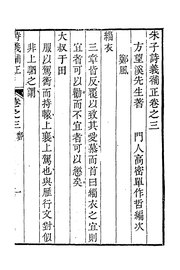 朱子詩義補正卷之三
方望溪先生著　門人高密單作哲編次
鄭風
緇衣
三章皆反覆以致其愛慕而首曰緇衣之宜則
宜者可以勸而不宜者可以懲矣
大叔于田
以襄駕而持轅上襄上駕也與雁行文對似
非上駟之謂
詩義補正　卷之三